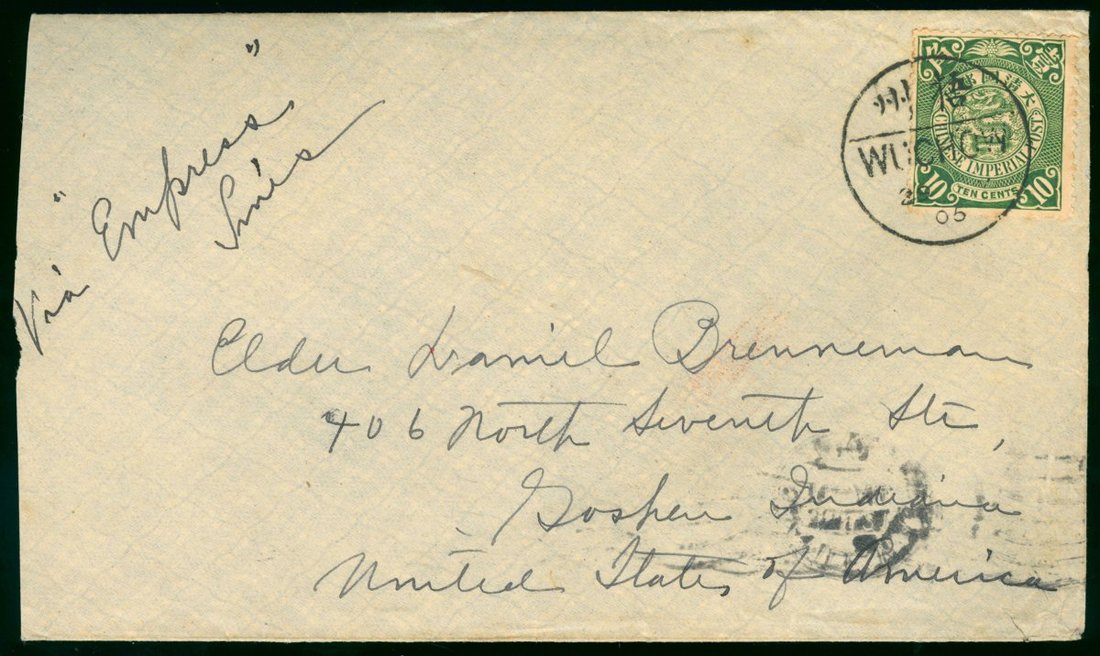 Via "Empress"
Line's
大清國郵政
CHINESE IMPERIAL POST
10 TEN CENTS 10
梧州
05
Elder Daniel Brenneman
406 North Seventh Str,
Goshen Indiana
United States of America